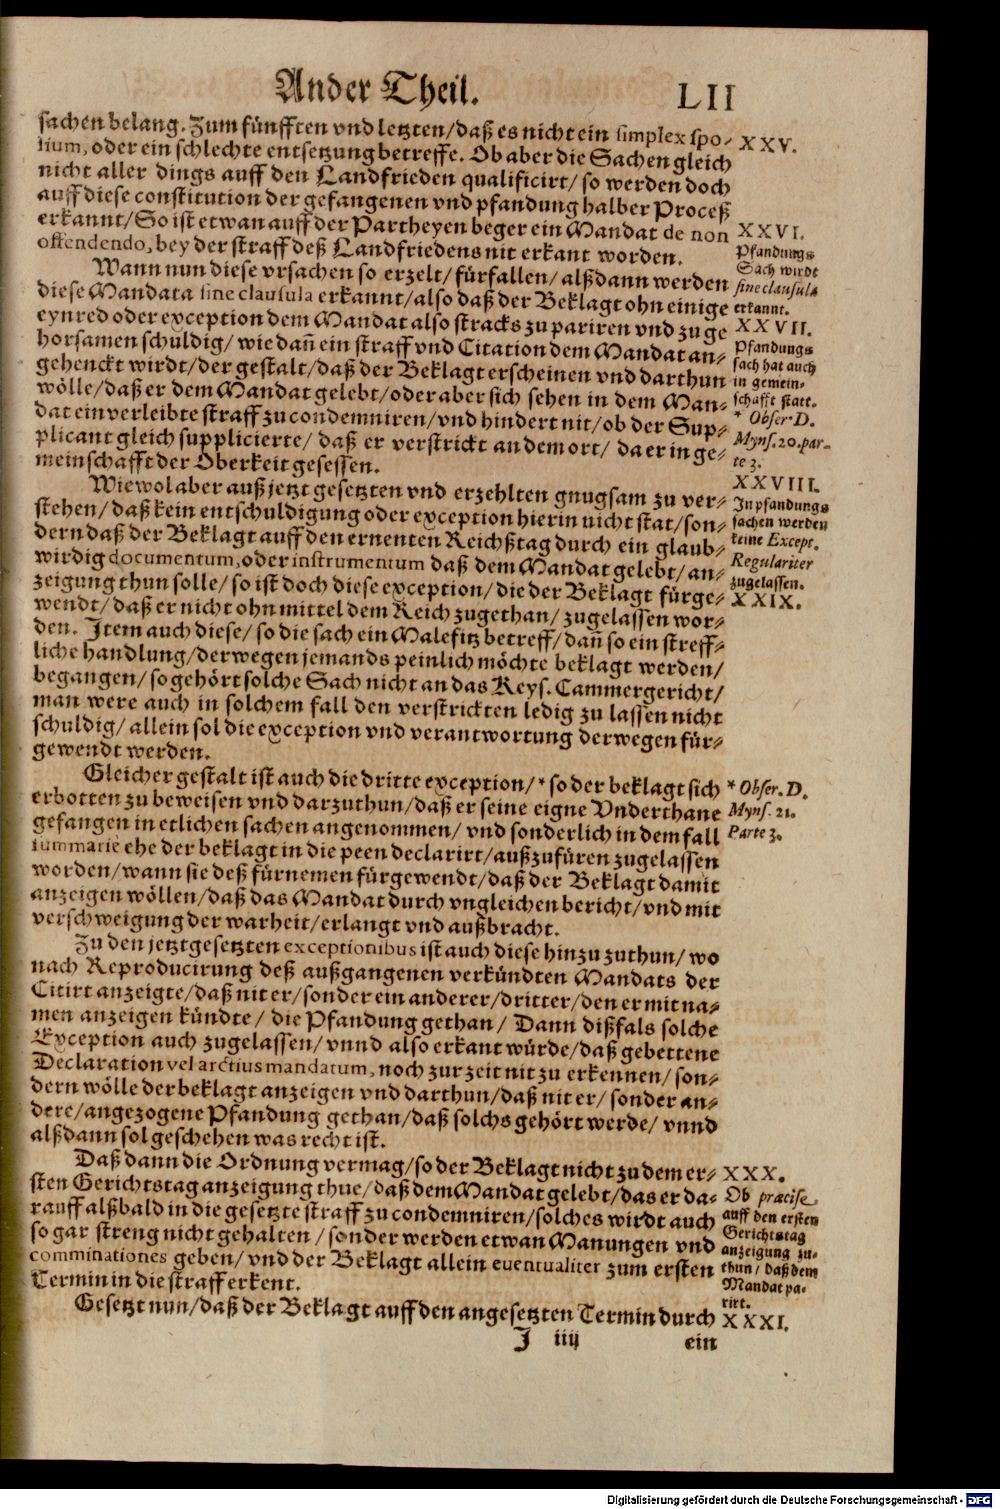 Ander Theil. LII
sachen belang. Zum fünfften vnd letzten/daß es nicht ein simplex spo-
lium, oder ein schlechte entsetzung betreffe. Ob aber die Sachen gleich
nicht aller dings auff den Landfrieden qualificirt/ so werden doch
auff diese constitution der gefangenen vnd pfandung halber Proceß
erkannt/ So ist etwan auff der Partheyen beger ein Mandat de non
offendendo, bey der straff deß Landfriedens nit erkant worden.
Wann nun diese vrsachen so erzelt/ fürfallen/ alßdann werden
diese Mandata sine clausula erkannt/ also daß der Beklagt ohn einige
eynred oder exception dem Mandat also stracks zu pariren vnd zu ge
horsamen schuldig/ wie dañ ein straff vnd Citation dem Mandat an-
gehenckt wirdt/ der gestalt/ daß der Beklagt erscheinen vnd darthun
wölle/ daß er dem Mandat gelebt/ oder aber sich sehen in dem Man-
dat einverleibte straff zu condemniren/ vnd hindert nit/ ob der Sup-
plicant gleich supplicierte/ daß er verstrickt an dem ort/ da er in ge-
meinschafft der Oberkeit gesessen.
Wiewol aber auß jetzt gesetzten vnd erzehlten gnugsam zu ver-
stehen/ daß kein entschuldigung oder exception hierin nicht stat/ son-
dern daß der Beklagt auff den ernenten Reichßtag durch ein glaub-
wirdig documentum, oder instrumentum daß dem Mandat gelebt/ an-
zeigung thun solle/ so ist doch diese exception/ die der Beklagt fürge-
wendt/ daß er nicht ohn mittel dem Reich zugethan/ zugelassen wor-
den. Item auch diese/ so die sach ein Malefitz betreff/ dañ so ein streff-
liche handlung/ derwegen jemands peinlich möchte beklagt werden/
begangen/ so gehört solche Sach nicht an das Keys. Cammergericht/
man were auch in solchem fall den verstrickten ledig zu lassen nicht
schuldig/ allein sol die exception vnd verantwortung derwegen für-
gewendt werden.
Gleicher gestalt ist auch die dritte exception/ * so der beklagt sich
erbotten zu beweisen vnd darzuthun/ daß er seine eigne Vnderthane
gefangen in etlichen sachen angenommen/ vnd sonderlich in dem fall
summarie ehe der beklagt in die peen declarirt/ außzufüren zugelassen
worden/ wann sie deß fürnemen fürgewendt/ daß der Beklagt damit
anzeigen wöllen/ daß das Mandat durch vngleichen bericht/ vnd mit
verschweigung der warheit/ erlangt vnd außbracht.
Zu den jetztgesetzten exceptionibus ist auch diese hinzu zuthun/ wo
nach Reproducirung deß außgangenen verkündten Mandats der
Citirt anzeigte/ daß nit er/ sonder ein anderer/ dritter/ den er mit na-
men anzeigen kündte/ die Pfandung gethan/ Dann dißfals solche
Exception auch zugelassen/ vnnd also erkant würde/ daß gebettene
Declaration vel arctius mandatum, noch zur zeit nit zu erkennen/ son-
dern wölle der beklagt anzeigen vnd darthun/ daß nit er/ sonder an-
dere/ angezogene Pfandung gethan/ daß solchs gehört werde/ vnnd
alßdann sol geschehen was recht ist.
Daß dann die Ordnung vermag/ so der Beklagt nicht zu dem er-
sten Gerichtstag anzeigung thue/ daß dem Mandat gelebt/ das er da-
rauff alßbald in die gesetzte straff zu condemniren/ solches wirdt auch
so gar streng nicht gehalten/ sonder werden etwan Manungen vnd
comminationes geben/ vnd der Beklagt allein eventualiter zum ersten
Termin in die straff erkent.
Gesetzt nun/ daß der Beklagt auff den angesetzten Termin durch
J iiij ein
XXV.
XXVI.
Pfandungs
Sach wirdt
sine clausula
erkannt.
XXVII.
Pfandungs
sach hat auch
in gemein-
schafft statt.
* Obser D.
Myns. 20. par-
te 3.
XXVIII.
In pfandungs
sachen werden
keine Except.
Regulariter
zugelassen.
XXIX.
* Obser. D.
Myns. 21.
Parte 3.
XXX.
Ob præcise
auff den ersten
Gerichtstag
anzeigung zu-
thun/ daß dem
Mandat pa-
rirt.
XXXI.
Digitalisierung gefördert durch die Deutsche Forschungsgemeinschaft - DFG